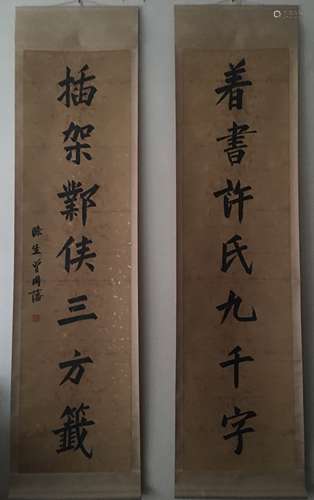 着書許氏九千字
插架鄴侯三方籤
滌生曾國藩